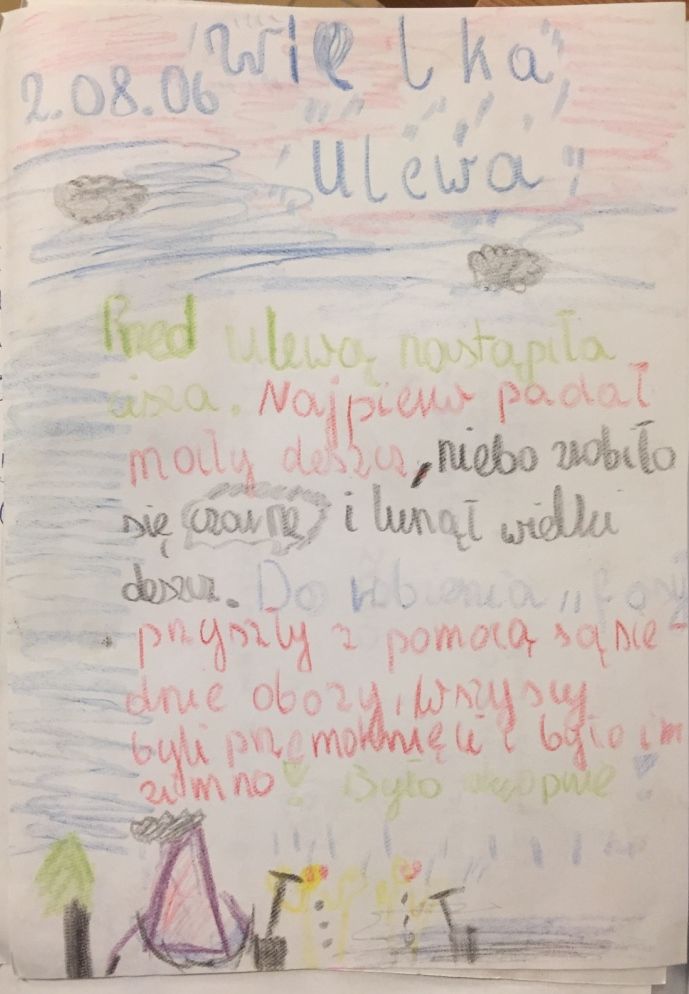 Wielka
2.08.06
Ulewa
Przed ulewą nastąpiła
cisza. Najpierw padał
mały deszcz, niebo zrobiło
się czarne i lunął wielki
deszcz. Do robienia „fosy
przyszły z pomocą są sie-
dnie obozy, wszyscy
byli przemoknięci i było im
zimno! Było okropnie!